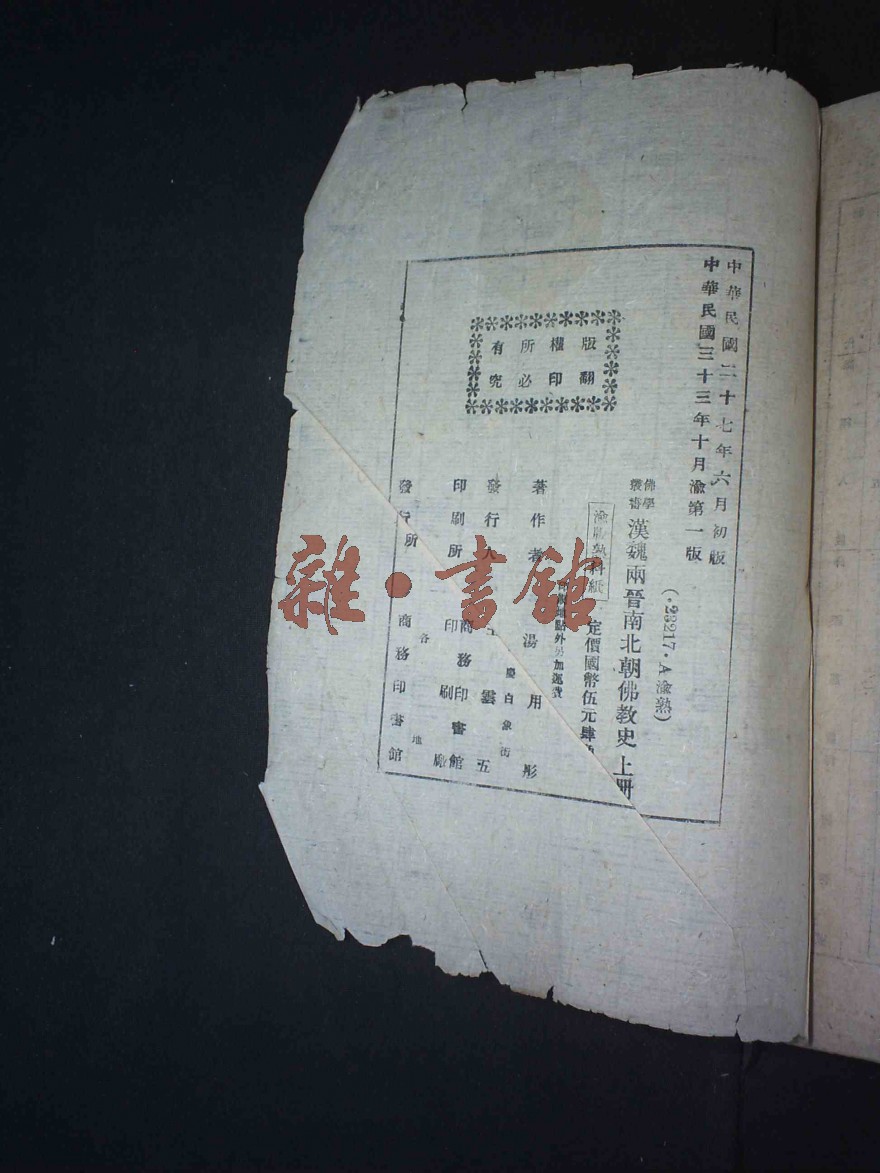 中華民國二十七年六月初版
中華民國三十三年十月渝第一版
(·23217·A渝熟)
佛學
叢書
漢魏兩晉南北朝佛教史 上冊
渝版熟料紙
定價國幣伍元肆
印刷地點外另加運費
版權所有
翻印必究
著作者 湯用彤
慶白象街
發行人 王雲五
印刷所 商務印書館
印刷廠
發行所 各地
商務印書館
雜·書館